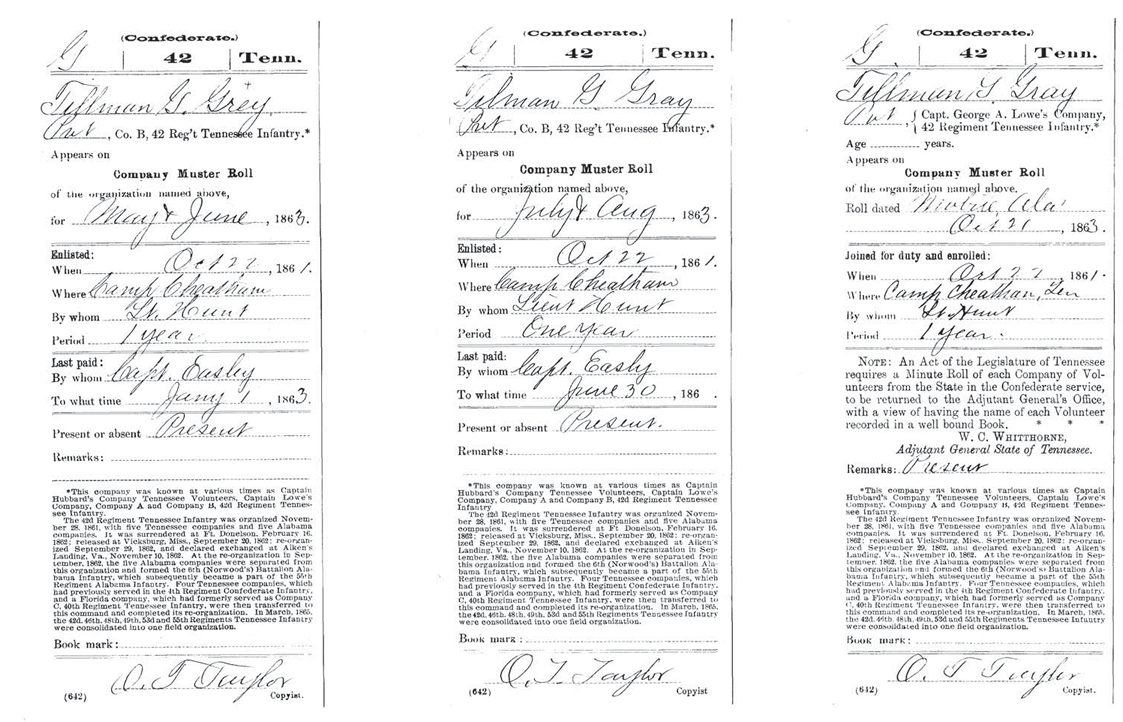 (Confederate.)
G | 42 | Tenn.
Tillman G. Grey
Pvt, Co. B, 42 Reg't Tennessee Infantry.*
Appears on
Company Muster Roll
of the organization named above,
for May & June, 1863.
Enlisted:
When Oct 22, 1861.
Where Camp Cheatham
By whom Lt. Hunt
Period 1 year.
Last paid:
By whom Capt. Easley
To what time Jany 1, 1863
Present or absent Present
Remarks:
*This company was known at various times as Captain
Hubbard's Company Tennessee Volunteers, Captain Lowe's
Company, Company A and Company B, 42d Regiment Tennes-
see Infantry.
The 42d Regiment Tennessee Infantry was organized Novem-
ber 28, 1861, with five Tennessee companies and five Alabama
companies. It was surrendered at Ft. Donelson, February 16,
1862; released at Vicksburg, Miss., September 20, 1862; re-organ-
ized September 29, 1862, and declared exchanged at Aiken's
Landing, Va., November 10, 1862. At the re-organization in Sep-
tember, 1862, the five Alabama companies were separated from
this organization and formed the 6th (Norwood's) Battalion Ala-
bama Infantry, which subsequently became a part of the 55th
Regiment Alabama Infantry. Four Tennessee companies, which
had previously served in the 4th Regiment Confederate Infantry,
and a Florida company, which had formerly served as Company
C, 40th Regiment Tennessee Infantry, were then transferred to
this command and completed its re-organization. In March, 1865,
the 42d, 46th, 48th, 49th, 53d and 55th Regiments Tennessee Infantry
were consolidated into one field organization.
Book mark:
O. T. Taylor
(642) Copyist.
(Confederate.)
G | 42 | Tenn.
Tilman G Gray
Pvt, Co. B, 42 Reg't Tennessee Infantry.*
Appears on
Company Muster Roll
of the organization named above,
for July & Aug, 1863.
Enlisted:
When Oct 22, 1861.
Where Camp Cheatham
By whom Lieut Hunt
Period One Year
Last paid:
By whom Capt. Easly
To what time June 30, 186 .
Present or absent Present.
Remarks:
*This company was known at various times as Captain
Hubbard's Company Tennessee Volunteers, Captain Lowe's
Company, Company A and Company B, 42d Regiment Tennessee
Infantry
The 42d Regiment Tennessee Infantry was organized Novem-
ber 28, 1861, with five Tennessee companies and five Alabama
companies. It was surrendered at Ft. Donelson, February 16,
1862; released at Vicksburg, Miss., September 20, 1862; re-organ-
ized September 29, 1862, and declared exchanged at Aiken's
Landing, Va., November 10, 1862. At the re-organization in Sep-
tember, 1862, the five Alabama companies were separated from
this organization and formed the 6th (Norwood's) Battalion Ala-
bama Infantry, which subsequently became a part of the 55th
Regiment Alabama Infantry. Four Tennessee companies, which
had previously served in the 4th Regiment Confederate Infantry,
and a Florida company, which had formerly served as Company
C, 40th Regiment Tennessee Infantry, were then transferred to
this command and completed its re-organization. In March, 1865,
the 42d, 46th, 48th, 49th, 53d and 55th Regiments Tennessee Infantry
were consolidated into one field organization.
Book mark:
O. T. Taylor
(642) Copyist
(Confederate.)
G | 42 | Tenn.
Tillman G. Gray
Pvt, { Capt. George A. Lowe's Company,
42 Regiment Tennessee Infantry.*
Age years.
Appears on
Company Muster Roll
of the organization named above.
Roll dated Mobile, Ala
Oct 21, 1863.
Joined for duty and enrolled:
When Oct 22, 1861.
Where Camp Cheatham, Ten
By whom Lt. Hunt
Period 1 year.
NOTE: An Act of the Legislature of Tennessee
requires a Minute Roll of each Company of Vol-
unteers from the State in the Confederate service,
to be returned to the Adjutant General's Office,
with a view of having the name of each Volunteer
recorded in a well bound Book. * * *
W. C. WHITTHORNE,
Adjutant General State of Tennessee.
Remarks: Present
*This company was known at various times as Captain
Hubbard's Company Tennessee Volunteers, Captain Lowe's
Company, Company A and Company B, 42d Regiment Tennes-
see Infantry.
The 42d Regiment Tennessee Infantry was organized Novem-
ber 28, 1861, with five Tennessee companies and five Alabama
companies. It was surrendered at Ft. Donelson, February 16,
1862; released at Vicksburg, Miss., September 20, 1862; re-organ-
ized September 29, 1862, and declared exchanged at Aiken's
Landing, Va., November 10, 1862. At the re-organization in Sep-
tember, 1862, the five Alabama companies were separated from
this organization and formed the 6th (Norwood's) Battalion Ala-
bama Infantry, which subsequently became a part of the 55th
Regiment Alabama Infantry. Four Tennessee companies, which
had previously served in the 4th Regiment Confederate Infantry,
and a Florida company, which had formerly served as Company
C, 40th Regiment Tennessee Infantry, were then transferred to
this command and completed its re-organization. In March, 1865,
the 42d, 46th, 48th, 49th, 53d and 55th Regiments Tennessee Infantry
were consolidated into one field organization.
Book mark:
O. T. Taylor
(642) Copyist.